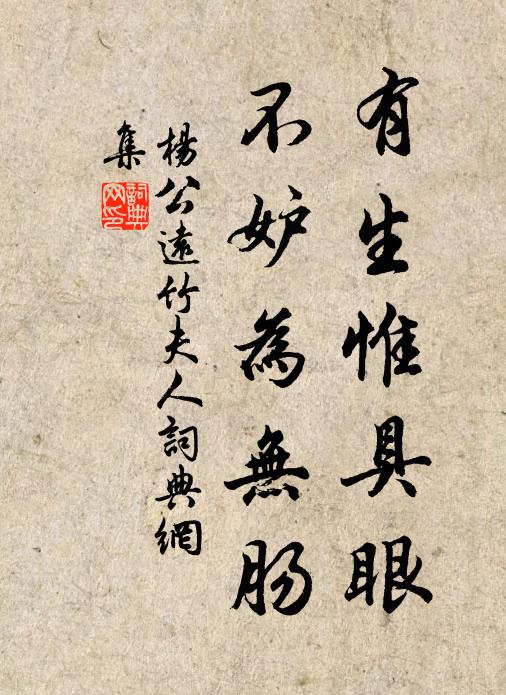 有生惟具眼
不妒為無腸
楊公遠竹夫人詞典網
集
詞典網印